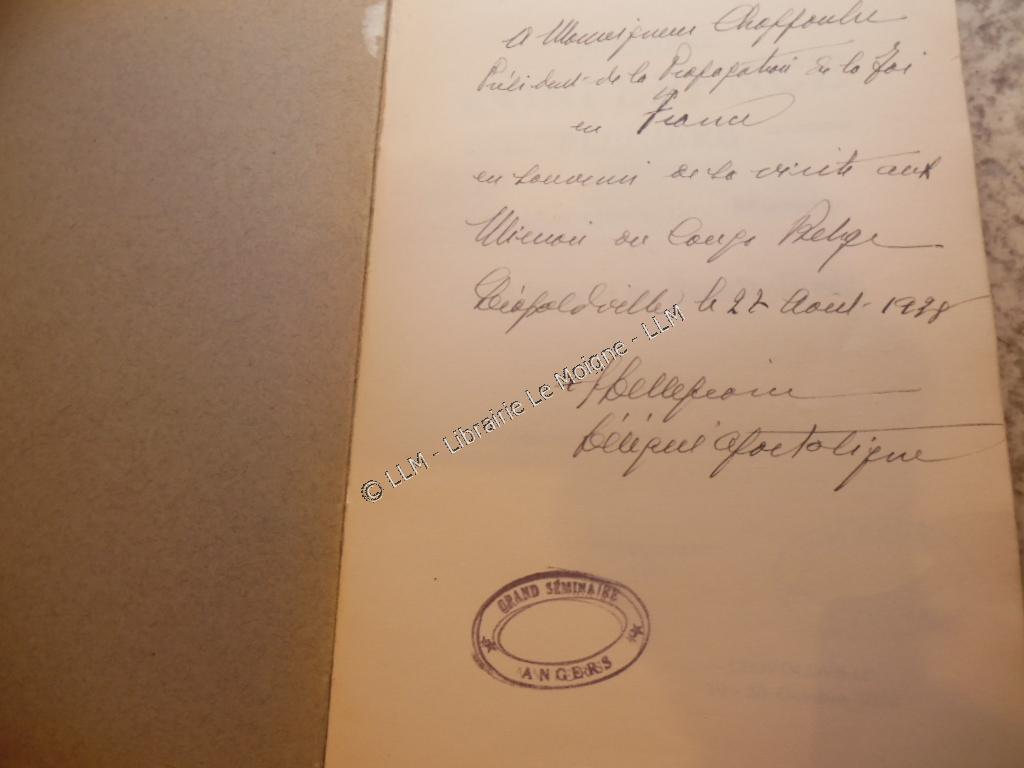 A Monseigneur Chappoulie
Président de la Propagation de la Foi
en France
en souvenir de sa visite aux
Missions du Congo Belge
Léopoldville, le 27 Août 1938
Délégué Apostolique
© LLM - Librairie Le Moigne - LLM
GRAND SÉMINAIRE
ANGERS